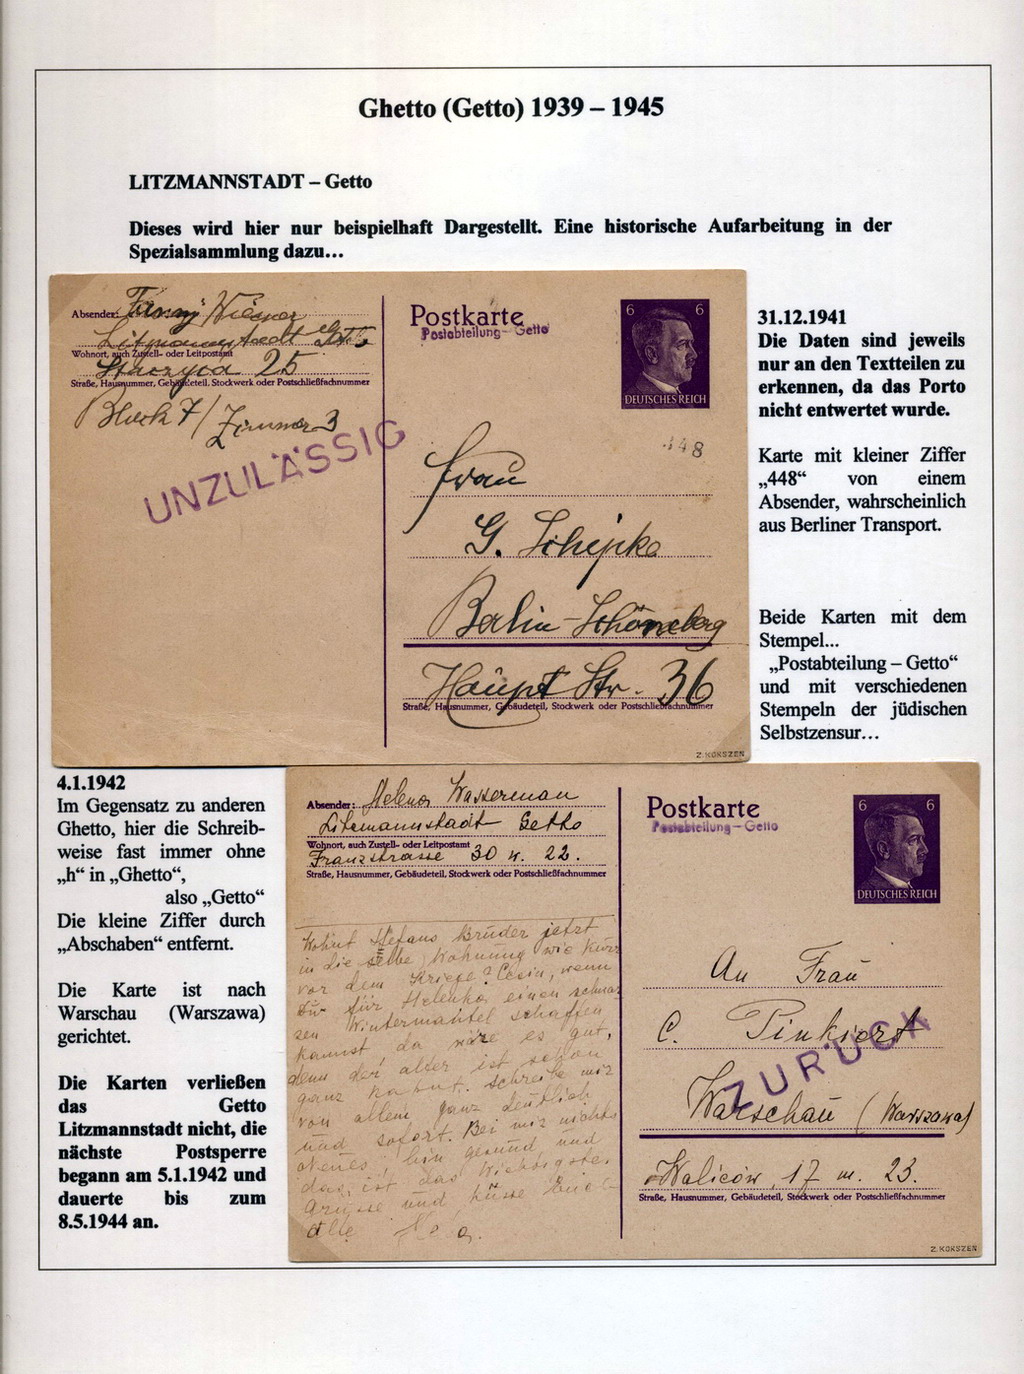 Ghetto (Getto) 1939 – 1945
LITZMANNSTADT – Getto
Dieses wird hier nur beispielhaft Dargestellt. Eine historische Aufarbeitung in der
Spezialsammlung dazu...
Absender: Fanny Wiener
Litzmannstadt Getto
Wohnort, auch Zustell- oder Leitpostamt
25
Straße, Hausnummer, Gebäudeteil, Stockwerk oder Postschließfachnummer
Block 7/ Zimmer 3
UNZULÄSSIG
Postkarte
Postabteilung - Getto
6 6
DEUTSCHES REICH
448
Frau
G. Schepke
Berlin-Schöneberg
Haupt Str. 36
Straße, Hausnummer, Gebäudeteil, Stockwerk oder Postschließfachnummer
Z. KOKSZEN
31.12.1941
Die Daten sind jeweils
nur an den Textteilen zu
erkennen, da das Porto
nicht entwertet wurde.
Karte mit kleiner Ziffer
„448“ von einem
Absender, wahrscheinlich
aus Berliner Transport.
Beide Karten mit dem
Stempel...
„Postabteilung – Getto“
und mit verschiedenen
Stempeln der jüdischen
Selbstzensur...
4.1.1942
Im Gegensatz zu anderen
Ghetto, hier die Schreib-
weise fast immer ohne
„h“ in „Ghetto“,
also „Getto“
Die kleine Ziffer durch
„Abschaben“ entfernt.
Die Karte ist nach
Warschau (Warszawa)
gerichtet.
Die Karten verließen
das Getto
Litzmannstadt nicht, die
nächste Postsperre
begann am 5.1.1942 und
dauerte bis zum
8.5.1944 an.
Absender: Helena Wasserman
Litzmannstadt Getto
Wohnort, auch Zustell- oder Leitpostamt
Franzstrasse 30 w. 22.
Straße, Hausnummer, Gebäudeteil, Stockwerk oder Postschließfachnummer
Wohnt Stefans Bruder jetzt
in die selbe Wohnung wie kurz
vor dem Kriege? Cesia, wenn
Du für Helenka einen schwar
zen Wintermantel schaffen
kannst, da wäre es gut,
denn der alter ist schon
ganz kaput. Schreibe mir
von allem ganz deutlich
und sofort. Bei mir nichts
Neues, bin gesund und
das ist das Wichtigste.
Grüsse und küsse Euch
alle Hela.
Postkarte
Postabteilung - Getto
6 6
DEUTSCHES REICH
An Frau
C. Pinkiert
ZURÜCK
Warschau (Warszawa)
Waliców 17 m. 23.
Straße, Hausnummer, Gebäudeteil, Stockwerk oder Postschließfachnummer
Z. KOKSZEN